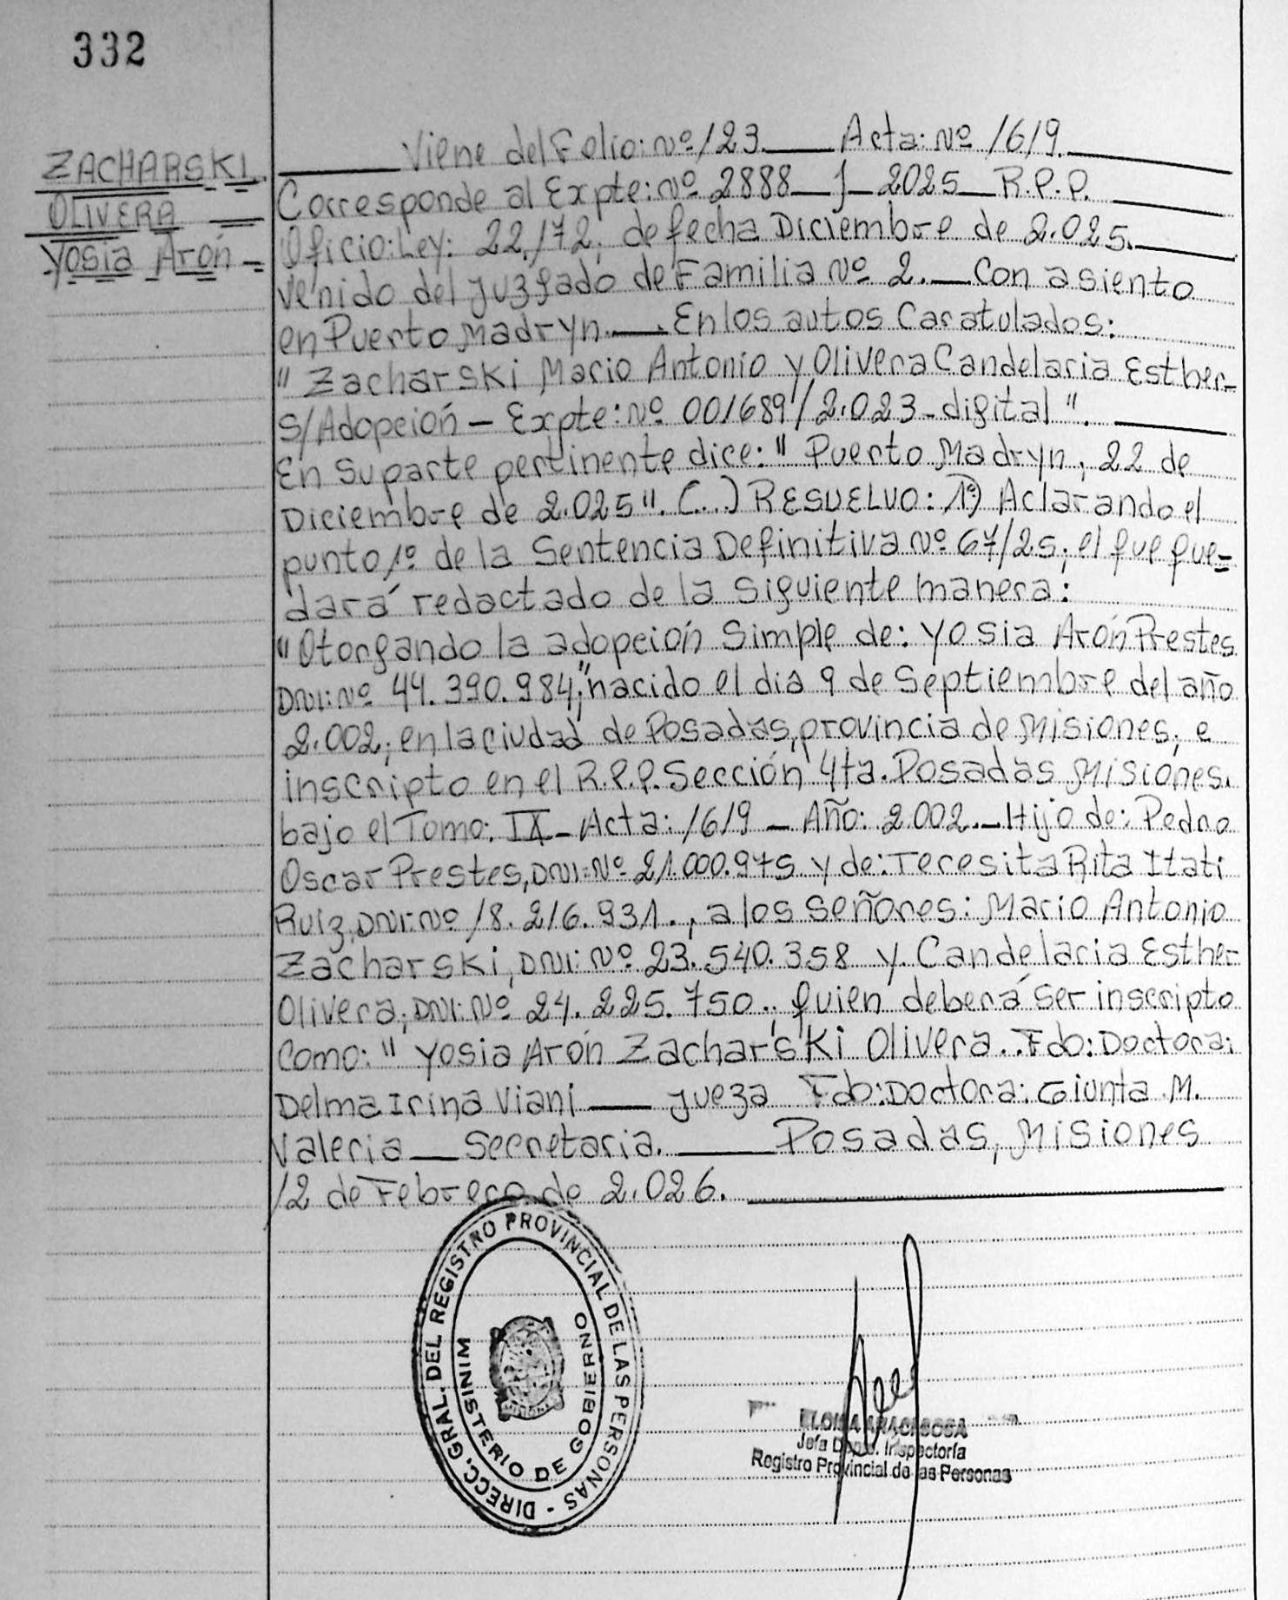 332
ZACHARSKI
OLIVERA
Yosia Arón
Viene del Folio: Nº 123 Acta: Nº 1619
Corresponde al Expte: Nº 2888 J 2025 R.P.P.
Oficio: Ley: 22.172, de fecha Diciembre de 2.025.
Venido del Juzgado de Familia Nº 2. Con asiento
en Puerto Madryn. En los autos Caratulados:
" Zacharski Mario Antonio y Olivera Candelaria Esther
S/Adopeión - Expte: Nº 001689/2.023-digital".
En su parte pertinente dice: " Puerto Madryn, 22 de
Diciembre de 2.025". (...) RESUELVO: 1º) Aclarando el
punto 1º de la Sentencia Definitiva Nº 67/25, el que que=
dará redactado de la siguiente manera:
"Otorgando la adopeión Simple de: Yosia Arón Prestes
DNI: Nº 44.390.984," nacido el dia 9 de Septiembre del año
2.002, en la ciudad de Posadas, provincia de Misiones, e
inscripto en el R.P.P. Sección 4ta. Posadas Misiones.
bajo el Tomo: IX - Acta: 1619 - Año: 2002. - Hijo de: Pedro
Oscar Prestes, DNI: Nº 21.000.975 y de: Teresita Rita Itati
Ruiz, DNI: Nº 18.216.931., a los señores: Mario Antonio
Zacharski, DNI: Nº 23.540.358 y Candelaria Esther
Olivera, DNI: Nº 24.225.750.. quien deberá ser inscripto
Como: " Yosia Arón Zacharski Olivera.. Fdo: Doctora:
Delma Irina Viani — Jueza Fdo: Doctora: Giunta M.
Valeria — Secretaria. Posadas, Misiones
12 de Febrero de 2.026.
DIRECC. GRAL. DEL REGISTRO PROVINCIAL DE LAS PERSONAS -
MINISTERIO DE GOBIERNO
Jefa Dpto. Inspectoría
Registro Provincial de las Personas